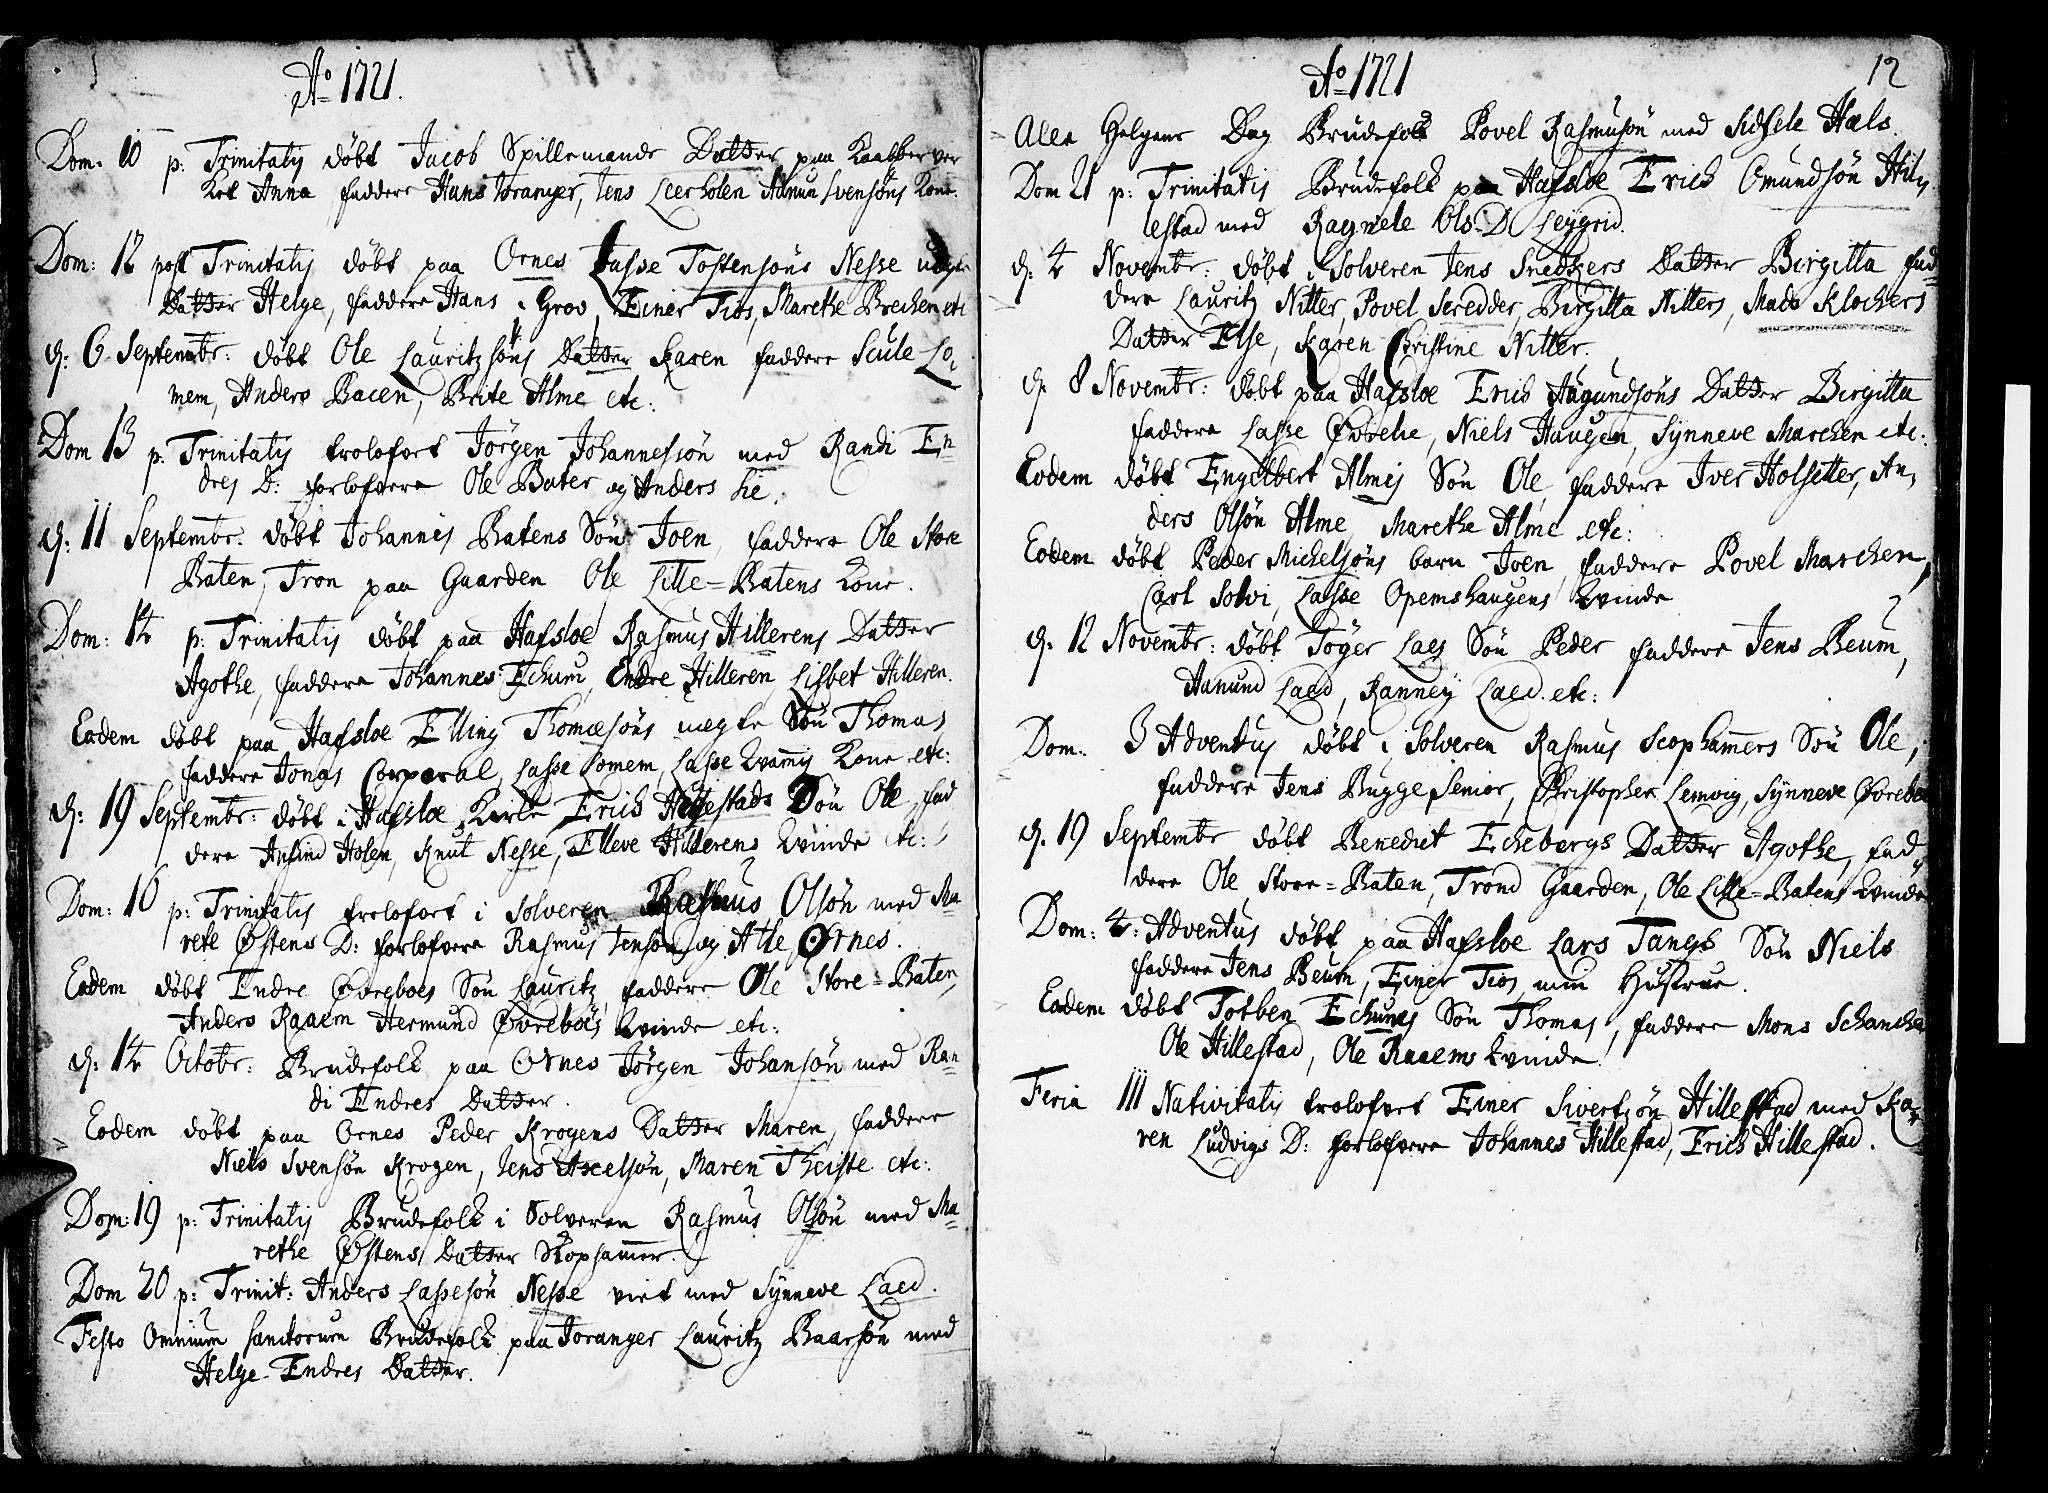 Aº 1721.
Dom: 10 p: Trinitatis döbt Jacob Spillemands Datter paa Kaabberver
ket Anna faddere Hans toranger, Jens Leerholen Svensöns Kone.
Dom: 12 post Trinitatis döbt paa Ornes Lasse Tostensöns Nesse uægte
Datter Helge, faddere Hans i Grov, Einer Tios, Marethe Brechen etc
d: 6 Septembr: döbt Ole Lauritzsöns Datter Karen faddere Scule Lo,
mem, Anders Bacen, Brite Alme etc:
Dom 13 p: Trinitatis trolofvet Jörgen Johannessön med Randi En=
dres D: forlofvere Ole Bater og Anders Lie.
d: 11 Septembr. döbt Johannes Batens Sön Joen, faddere Ole Store
Baten, Tron paa Gaarden Ole Lille=Batens Kone.
Dom: 14 p: Trinitatis döbt paa Hafsloe Rasmus Hillerens Datter
Agothe, faddere Johannes Echum, Endre Hilleren, Lisbet Hilleren.
Eodem döbt paa Hafsloe Elling Thomæsöns uægte Sön Thomas
faddere Jonas Corporal, Lasse Lomem, Lasse Kvams Kone etc:
d: 19 Septembr: döbt i Hafsloe Kirke Erich Hillestads Sön Ole, fad
dere Anfind Molen, Knut Nesse, Elleve Hillerens Kvinde etc:
Dom: 16 p: Trinitatis trolofvet i Solveren Rasmus Olsön med Ma=
rete Östens D: forlofvere Rasmus Jensön og Atle Ornes.
Eodem döbt Endre Övreboes Sön Lauritz, faddere Ole Store=Baten,
Anders Raaem Hermund Övreböes Kvinde etc:
d: 14 Octobr: Brudefolk paa Ornes Jörgen Johansön med Ran=
di Endres Datter.
Eodem döbt paa Ornes Peder Krogens Datter Maren, faddere
Niels Svensön Krogen, Jens Axelsön, Maren Theiste etc:
Dom: 19 p: Trinitatis Brudefolk i Solveren Rasmus Olsön med Ma=
rethe Östens Datter Skophammer.
Dom 20 p: Trinit: Anders Lassesön Nesse viet med Synneve Laed.
Festo Omnium Sanctorum Brudefolk paa Joranger Lauritz Baarsön med
Helge Endres Datter.
12
Aº 1721
Alle Helgens Dag Brudefolk Povel Rasmusön med Sidsele Hæls.
Dom 21 p: Trinitatis Brudefolk paa Hafsloe Erich Omundsön Hil,
lestad med Ragnele Ols. D. Leygrid.
d: 4 Novembr: döbt i Solveren Jens Snedkers Datter Birgitta fad=
dere Lauritz Nitter, Povel Scredder, Birgitta Nitters, Mads Klochers
Datter Else, Karen Christine Nitter.
d. 8 Novembr: döbt paa Hafsloe Erich Aagundsöns Datter Birgitta
faddere Lasse Övrehe, Niels Haugen, Synneve Marchen etc:
Eodem döbt Engelbert Almes Sön Ole, faddere Iver Molsetter, An,
ders Olsön Alme, Marethe Alme etc:
Eodem döbt Peder Michelsöns barn Joen, faddere Povel Marchen,
Carl Solvi, Lasse Opemshaugens Kvinde
d: 12 Novembr: döbt Töger Laes Sön Peder faddere Jens Beum,
Aamund Laed, Ranney Laed. etc:
Dom: 3 Adventus döbt i Solveren Rasmus Scophamers Sön Ole,
faddere Jens Bugge Senior, Christopher Lemvig, Synneve Övreboe
d. 19 Septembr döbt Benedict Echebergs Datter Agothe, fad,
dere Ole Store=Baten, Trond Gaarden, Ole Lille=Batens Kvinde
Dom: 4: Adventus döbt paa Hafsloe Lars Tangs Sön Niels
faddere Jens Beum, Einer Tios, min Hustrue.
Eodem döbt Torben Echums Sön Thomas, faddere Mons Schanche
Ole Hillestad, Ole Raaems Kvinde.
Feria III Nativitatis trolofvet Einer Sivertsön Hillestad med Ka=
ren Ludvigs D: forlofvere Johannes Hillestad, Erich Hillestad.